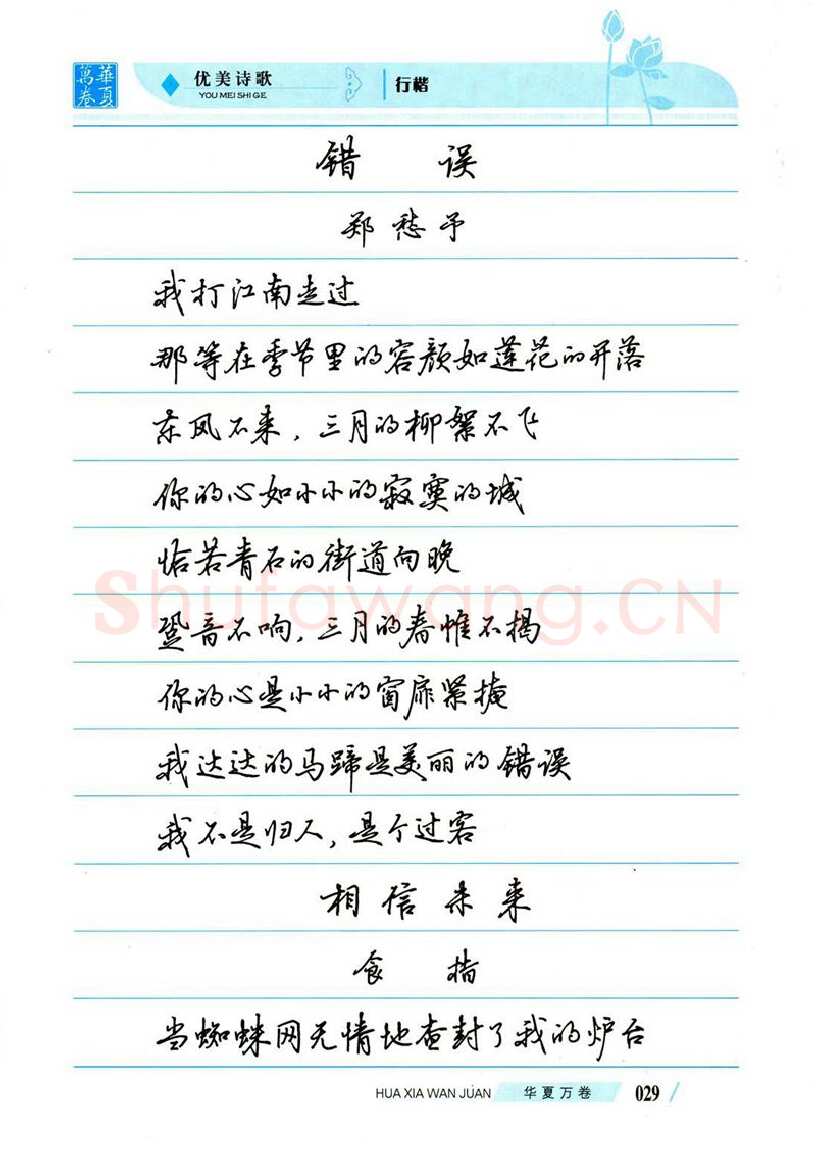 華夏萬卷
优美诗歌
YOU MEI SHI GE
行楷
错 误
郑愁予
我打江南走过
那等在季节里的容颜如莲花的开落
东风不来，三月的柳絮不飞
你的心如小小的寂寞的城
恰若青石的街道向晚
跫音不响，三月的春帷不揭
你的心是小小的窗扉紧掩
我达达的马蹄是美丽的错误
我不是归人，是个过客
相信未来
食 指
当蜘蛛网无情地查封了我的炉台
Shufawang.CN
HUA XIA WAN JUAN
华夏万卷
029